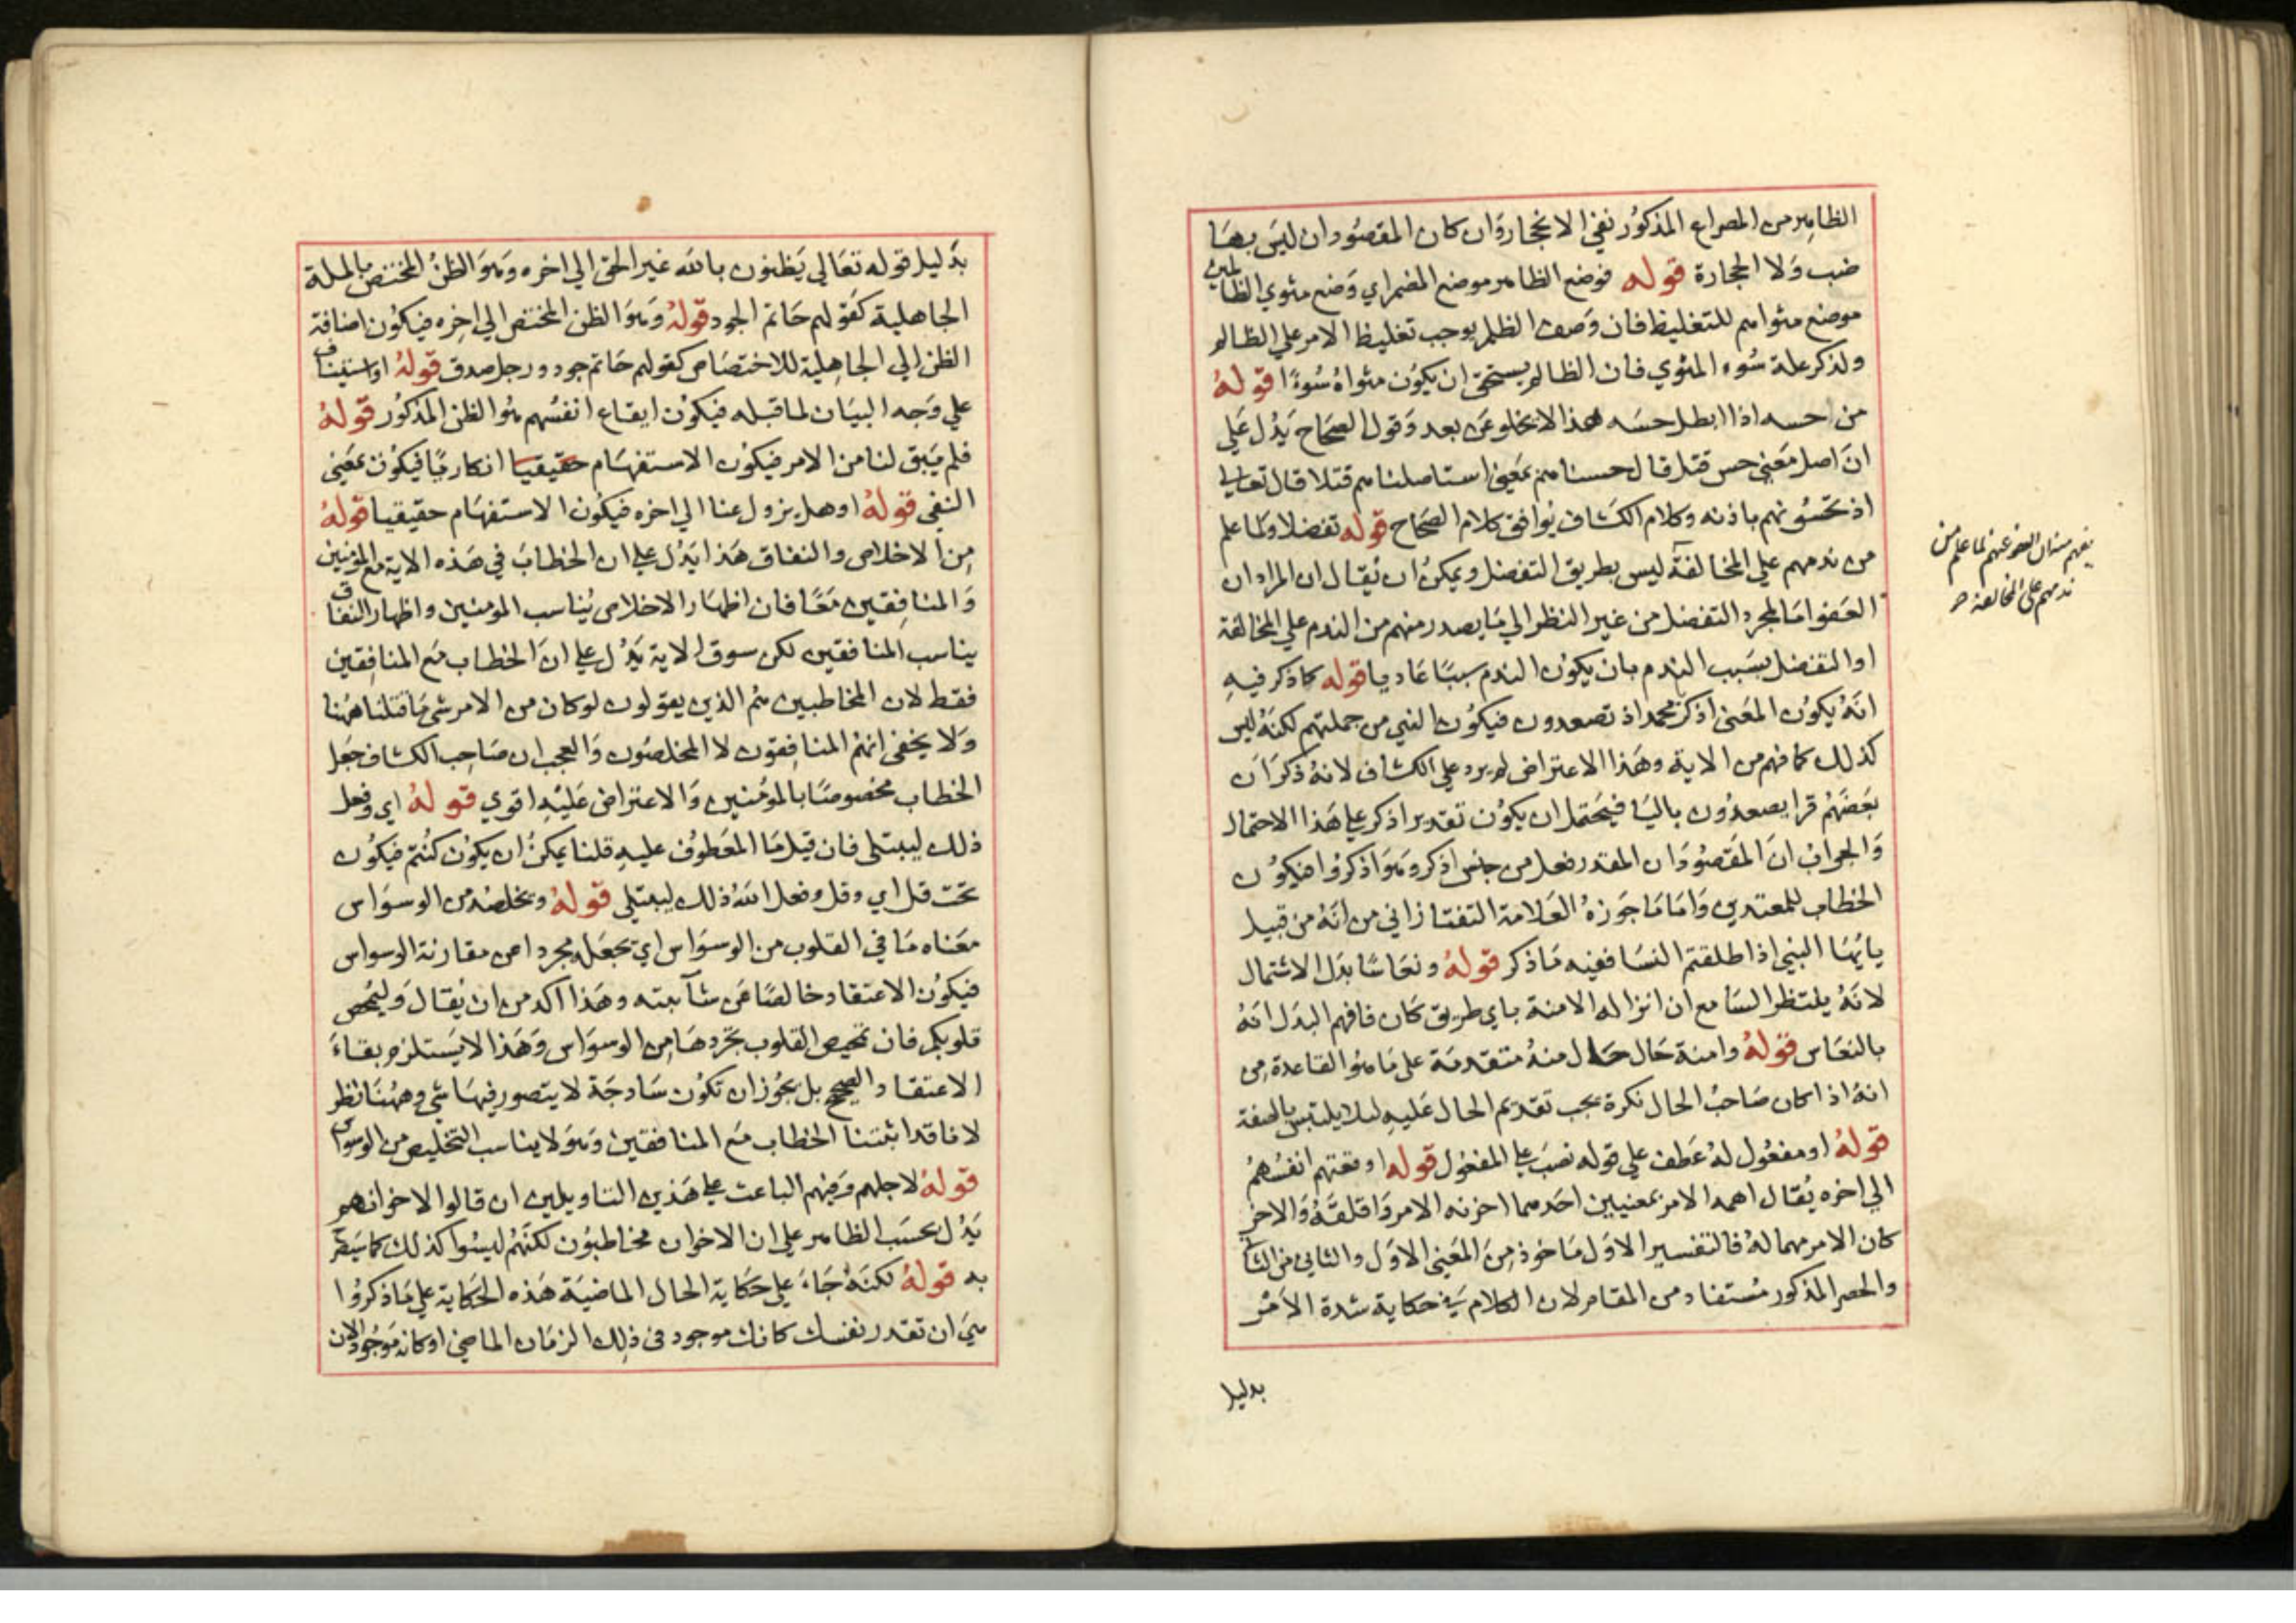 الظاهر من المصراع المذكور نفي الانجحار وان كان المقصود ان ليس بها
ضب ولا انجحاره قوله فوضع الظاهر موضع المضمر اي وضع مثوي الظالمين
موضع مثواهم للتغليظ فان وصف الظلم يوجب تغليظ الامر علي الظالم
ولذكر علة سوء المثوي فان الظالم يستحق ان يكون مثواه سُوءًا قوله
من احسه اذا ابطل حسه هذا لا يخلو عن بعد وقول الصحاح يدل علي
ان اصل معني حس قتل قال حسسناهم بمعني استاصلناهم قتلا قال تعالي
اذ تحسونهم باذنه وكلام الكشاف يوافق كلام الصحاح قوله تفضلا ولما علم
من ندمهم علي المخالفة ليس بطريق التفضل ويمكن ان يقال ان المراد ان
العفو اما لمجرد التفضل من غير النظر الي ما يصدر منهم من الندم علي المخالفة
او التفضل بسبب الندم بان يكون الندم سببًا عاديا قوله كما ذكر فيه
انه يكون المعني اذكر محمد اذ تصعدون فيكون النبي من جملتهم لكنه ليس
كذلك كما فهم من الاية وهذا الاعتراض لم يرد علي الكشاف لانه ذكر ان
بعضهم قرا يصعدون باليا فيحتمل ان يكون تقدير اذكر علي هذا الاحتمال
والجواب ان المقصود ان المقدر فعل من جنس اذكر وهو اذكروا فيكون
الخطاب للمعتدين واما ما جوزه العلامة التفتازاني من انه من قبيل
يايها النبي اذا طلقتم النسا ففيه ما ذكر قوله ونعاسًا بدل الاشتمال
لانه ينتظر السامع ان انزاله الامنة باي طريق كان فافهم البدل انه
بالنعاس قوله وامنة حال حال منه متقدمة علي ما هو القاعدة من
انه اذا كان صاحب الحال نكرة يجب تقديم الحال عليه ليلا يلتبس بالصفة
قوله او مفعول له عطف علي قوله نصب علي المفعول قوله اوقعتهم انفسهم
الي اخره يقال اهمه الامر بمعنيين احدهما احزنه الامر واقلقه والاخر
كان الامر مهما له فالتفسير الاول ماخوذ من المعني الاول والثاني من الثاني
والحصر المذكور مستفاد من المقام لان الكلام في حكاية شدة الامر
بدليل
يفهم منه ان العفو عنهم لما علم من
ندمهم على المخالفة
بدليل قوله تعالي يظنون بالله غير الحق الي اخره وهو الظن المختص بالملة
الجاهلية كقولهم حاتم الجود قوله وهو الظن المختص الي اخره فيكون اضافة
الظن الي الجاهلية للاختصاص كقولهم حاتم جود ورجل صدق قوله او استيناف
علي وجه البيان لما قبله فيكون ايقاع انفسهم هو الظن المذكور قوله
فلم يبق لنا من الامر فيكون الاستفهام حقيقيا انكاريا فيكون بمعني
النفي قوله او هل يزول عنا الي اخره فيكون الاستفهام حقيقيا قوله
من الاخلاص والنفاق هذا يدل علي ان الخطاب في هذه الاية مع المومنين
والمنافقين معًا فان اظهار الاخلاص يناسب المومنين واظهار النفاق
يناسب المنافقين لكن سوق الاية يدل علي ان الخطاب مع المنافقين
فقط لان المخاطبين هم الذين يقولون لو كان من الامر شي ما قتلنا ههنا
ولا يخفي انهم المنافقون لا المخلصون والعجب ان صاحب الكشاف جعل
الخطاب مخصوصًا بالمومنين والاعتراض عليه اقوي قوله اي وفعل
ذلك ليبتلي فان قيل ما المعطوف عليه قلنا يمكن ان يكون كنتم فيكون
تحت قل اي وقل وفعل الله ذلك ليبتلي قوله ويخلصه من الوسواس
معناه ما في القلوب من الوسواس اي يجعله مجردا عن مقارنة الوسواس
فيكون الاعتقاد خالصًا عن شآبيته وهذا آكد من ان يقال وليمحص
قلوبكم فان تمحيص القلوب تجردها من الوسواس وهذا لا يستلزم بقاء
الاعتقاد الصحيح بل يجوز ان تكون ساذجة لا يتصور فيها شي وههنا نظر
لانا قد اثبتنا الخطاب مع المنافقين وهو لا يناسب التخليص من الوسواس
قوله لاجلهم وفيهم الباعث علي هذين التاويلين ان قالوا لاخوانهم
يدل بحسب الظاهر علي ان الاخوان مخاطبون لكنهم ليسوا كذلك كما سيصرح
به قوله لكنه جاء علي حكاية الحال الماضية هذه الحكاية علي ما ذكروا
هي ان تقدر نفسك كانك موجود في ذلك الزمان الماضي او كانه موجود الان